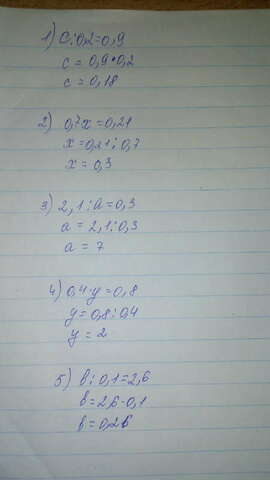 1) C:0,2=0,9
c = 0,9·0,2
c = 0,18
2) 0,7x=0,21
x=0,21:0,7
x=0,3
3) 2,1:a=0,3
a = 2,1:0,3
a = 7
4) 0,4·y=0,8
y=0,8:0,4
y = 2
5) в:0,1=2,6
в=2,6·0,1
в=0,26